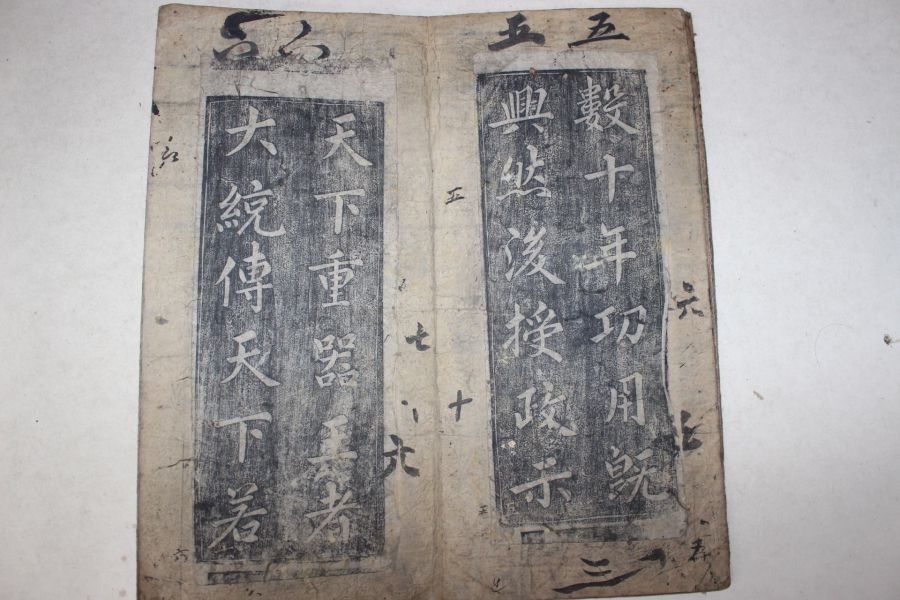 五 五
數十年功用既
興然後授政示
六
三
五
十
六 六
天下重器王者
大統傳天下若
七